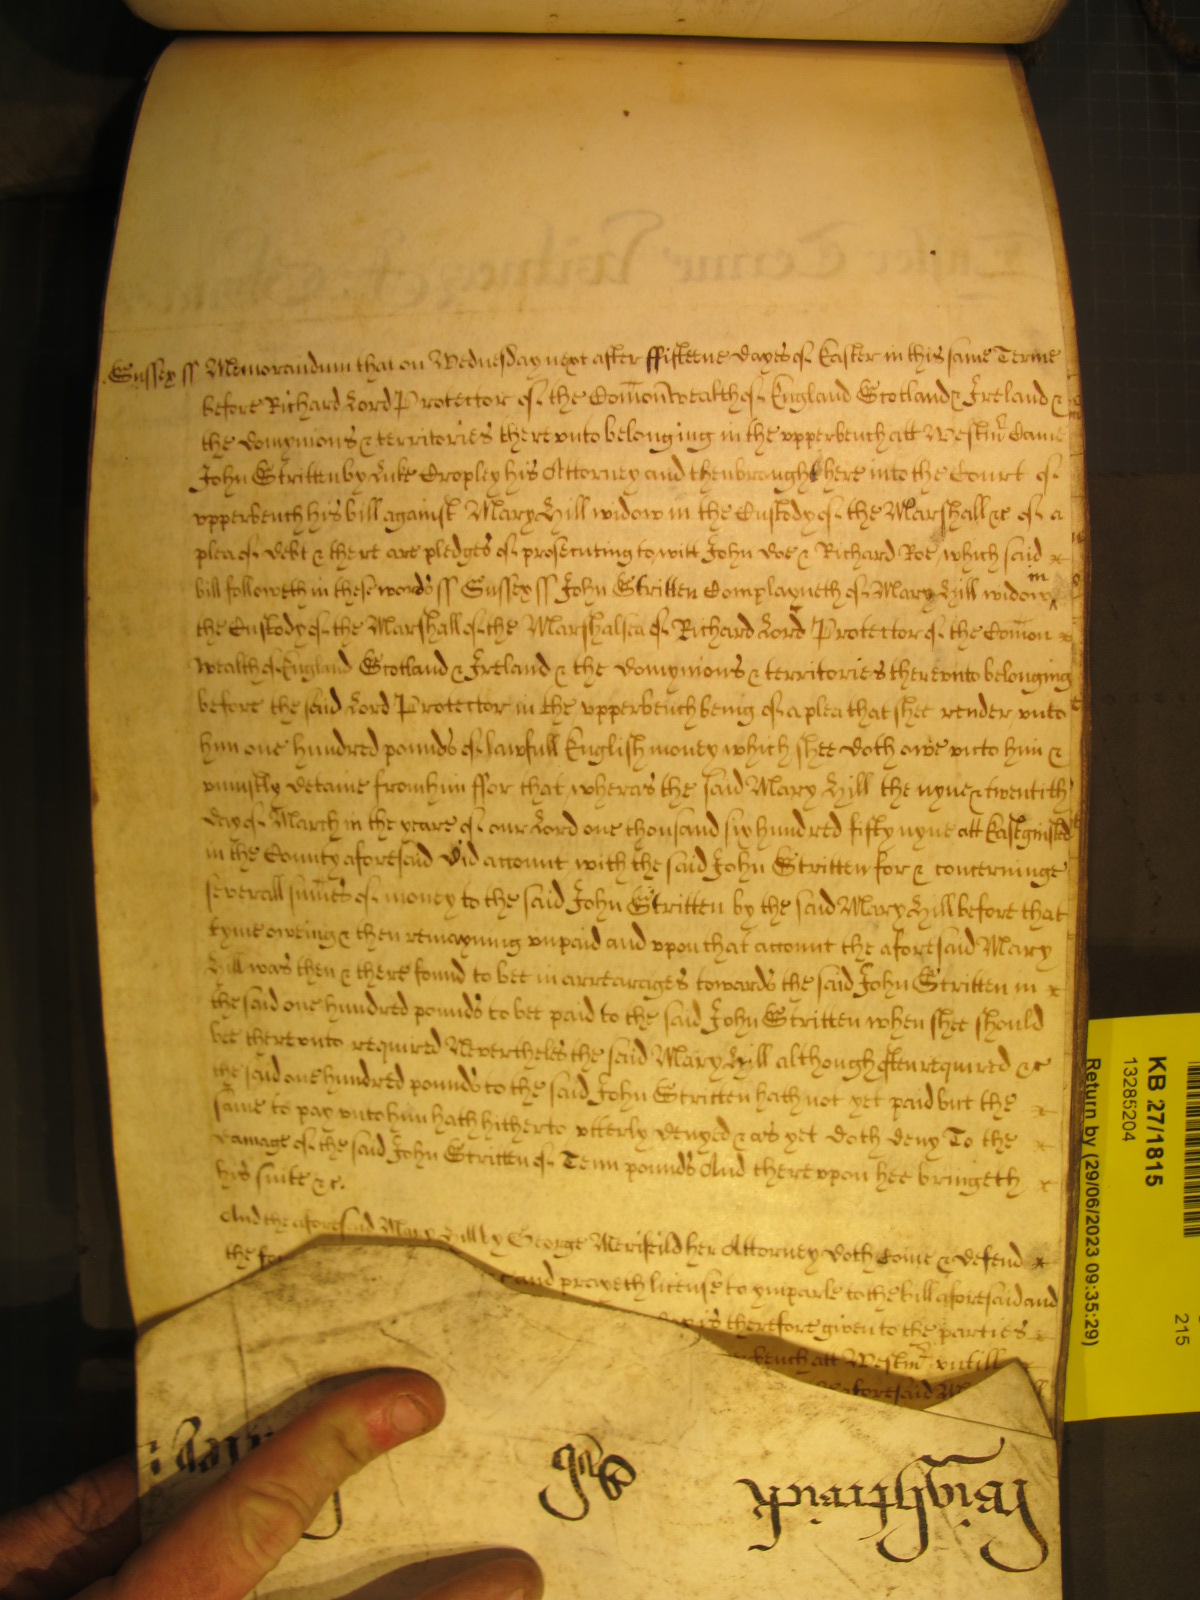 Sussex ss Memorandum that on Wednesday next after ffifteene dayes of Easter in this same Terme
before Richard Lord Protector of the Comonwealth of England Scotland & Ireland &
the domynions & territories therevnto belonging in the vpperbench att Westmr Came
John Stritten by Luke Cropley his Attorney and then brought here into the Court of
vpperbench his bill against Mary Hill widow in the Custody of the Marshall &c of a
plea of debt & there are pledges of prosecuting to witt John Doe & Richard Roe, which said
bill followeth in these words ss Sussex ss John Stritten Complayneth of Mary Hill widow in
the Custody of the Marshall of the Marshalsea of Richard Lord Protector of the Comon
wealth of England Scotland & Ireland & the domynions & territories therevnto belonging
before the said Lord Protector in the vpperbench being of a plea that shee render vnto
him one hundred pounds of lawfull English money which shee doth owe vnto him &
vniustly detaine from him ffor that wheras the said Mary Hill the nyne & twentith
day of March in the yeare of our Lord one thousand six hundred fifty nyne att Eastginsted
in the County aforesaid did account with the said John Stritten for & concerninge
severall sumes of money to the said John Stritten by the said Mary Hill before that
tyme oweing & then remayning vnpaid and vpon that account the aforesaid Mary
Hill was then & there found to bee in arrearages towards the said John Stritten in
the said one hundred pounds to bee paid to the said John Stritten when shee should
bee therevnto required Neverthelesse the said Mary Hill although often required &c
the said one hundred pounds to the said John Stritten hath not yet paid but the
same to pay vnto him hath hitherto vtterly denyed & as yet doth deny To the
damage of the said John Stritten of Tenn pounds And therevpon hee bringeth
his suite &c.
And the aforesaid Mary Hill by George Merifeild her Attorney doth Come & defend
the and prayeth license to ymparle to the bill aforesaid and
is therefore given to the parties
bench att Westmr vntill
aforesaid
Highstreich
KB 27/1815
13285204
Return by (29/06/2023 09:35:29)
215